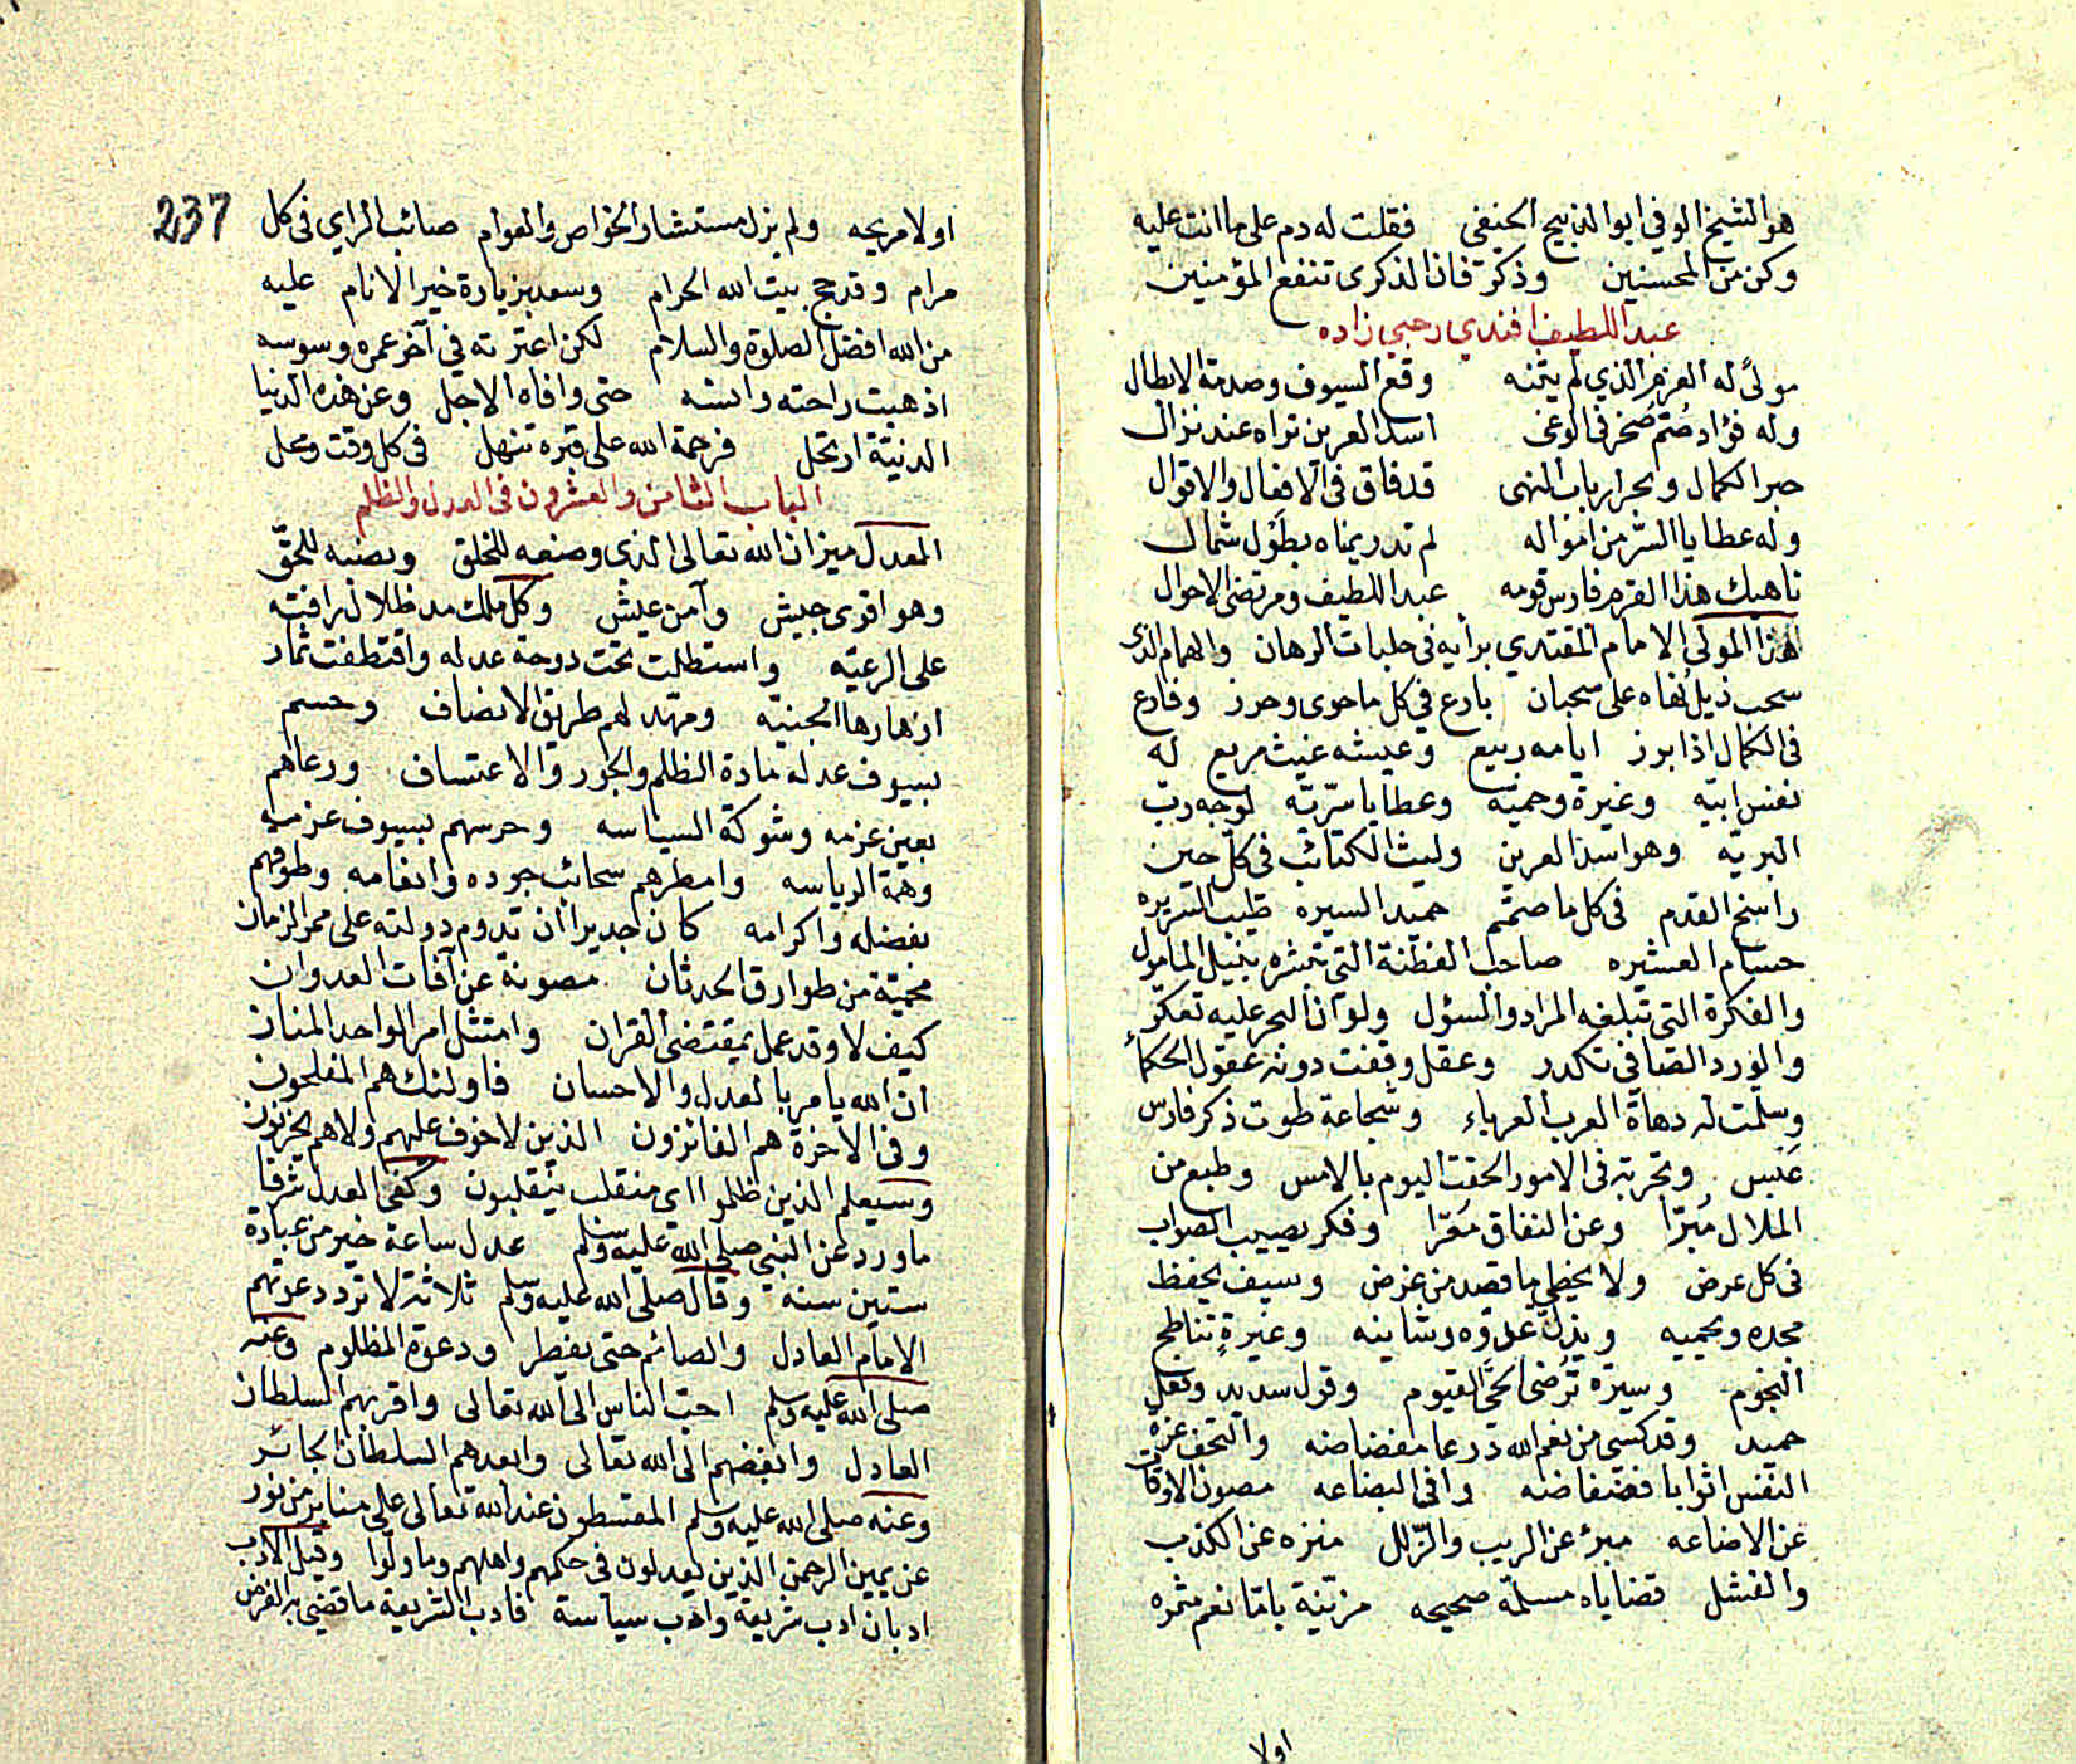 هو الشيخ الوفي ابو الذبيح الحنفي فقلت له دم على ما انت عليه
وكن من المحسنين وذكر فان الذكرى تنفع المؤمنين
عبد اللطيف افندي رحبي زاده
مولىً له العزم الذي لم يثنه وقع السيوف وصدمة الابطال
وله فؤاد صُتم صخر في الوغى اسد العرين تراه عند نزال
حبر الكمال وبحر ارباب النهى قد فاق في الافعال والاقوال
وله عطايا السّر من امواله لم تدر يمناه بطَوْل شمال
ناهيك هذا القرم فارس قومه عبد اللطيف ومرتضى الاحوال
هذا المولى الامام المقتدي برأيه في حلبات الرهان والهمام الذى
سحب ذيل نُهاه على سحبان بارع في كل ما حوى وحرز وفارع
في الكمال اذا برز ايامه ربيع وعيشه غيث مريع له
نفس ابيّه وغيرة وحميّه وعطايا سرّيّه لوجه ربّ
البريّه وهو اسد العرين وليث الكتائب في كل حين
راسخ القدم في كل ما صمّم حميد السيره طيب السريره
حسام العشيره صاحب الفطنة التي تبشره بنيل المامول
والفكرة التي تبلغه المراد والسؤل ولو ان البحر عليه تعكّر
والورد الصافي تكدر وعقل وقفت دونه عقول الحكماء
وسلّمت له دهاة العرب العرباء وشجاعة طوت ذكر فارس
عَبس وتجربة في الامور الحقت اليوم بالامس وطبع من
الملال مُبرّا وعن النفاق مُعَرّا وفكر يصيب الصواب
في كل عرض ولا يخطي ما قصد من غرض وسيف يحفظ
مجده ويحميه ويذل عدوّه وشانيه وغيرةٍ تناطح
النجوم وسيرة تُرضى الحيّ القيوم وقول سديد وفعل
حميد وقد كسي من نعم الله درعا مفضاضه والتحف عزة
النفس اثوابا فضفاضه وافي البضاعه مصون الاوقات
عن الاضاعه مبرؤ عن الريب والزّلل منزه عن الكذب
والفشل قضاياه مسلمّة صحيحه مزيّنة باقانعم مثمره
اولا
237
اولا مريحه ولم يزل مستشار الخواص والعوام صائب الراي في كل
مرام وقد حج بيت الله الحرام وسعد بزيارة خير الانام عليه
من الله افضل الصلوة والسلام لكن اعترته في آخر عمره وسوسه
اذهبت راحته وانسه حتى وافاه الاجل وعن هذه الدنيا
الدنيّة ارتحل فرحمة الله على قبره تنهل في كل وقت ومحل
الباب الثامن والعشرون في العدل والظلم
العدل ميزان الله تعالى الذى وضعه للخلق ونصبه للحقّ
وهو اقوى جيش وآمن عيش وكل ملك مد ظلال رافته
على الرعيّه واستظلت تحت دوحة عدله واقتطفت ثمار
ازهارها الجنيّه ومهّد لهم طريق الانصاف وحسم
بسيوف عدله مادة الظلم والجور والاعتساف ورعاهم
بعين عزمه وشوكة السياسه وحرسهم بسيوف عزمه
وهمّة الرياسه وامطرهم سحائب جوده وانعامه وطوقهم
بفضله واكرامه كان جديرا ان تدوم دولته على ممر الزمان
محميّة من طوارق الحدثان مصونة عن آفات العدوان
كيف لا وقد عمل بمقتضى القران وامتثل امر الواحد المنان
ان الله يامر بالعدل والاحسان فاولئك هم المفلحون
وفي الاخرة هم الفائزون الذين لا خوف عليهم ولا هم يحزنون
وسيعلم الذين ظلموا اي منقلب ينقلبون وكفى العدل شرفا
ما ورد عن النبي صلى الله عليه وسلم عدل ساعة خير من عبادة
ستين سنة وقال صلى الله عليه وسلم ثلاثة لا ترد دعوتهم
الامام العادل والصائم حتى يفطر ودعوة المظلوم وعنه
صلى الله عليه وسلم احبّ الناس الى الله تعالى واقربهم السلطان
العادل وابغضهم الى الله تعالى وابعدهم السلطان الجائر
وعنه صلى الله عليه وسلم المقسطون عند الله تعالى على منابر من نور
عن يمين الرحمن الذين يعدلون في حكمهم واهلهم وما ولّوا وقيل الادب
ادبان ادب شريعة وادب سياسة فادب الشريعة ما قضي به الفرض